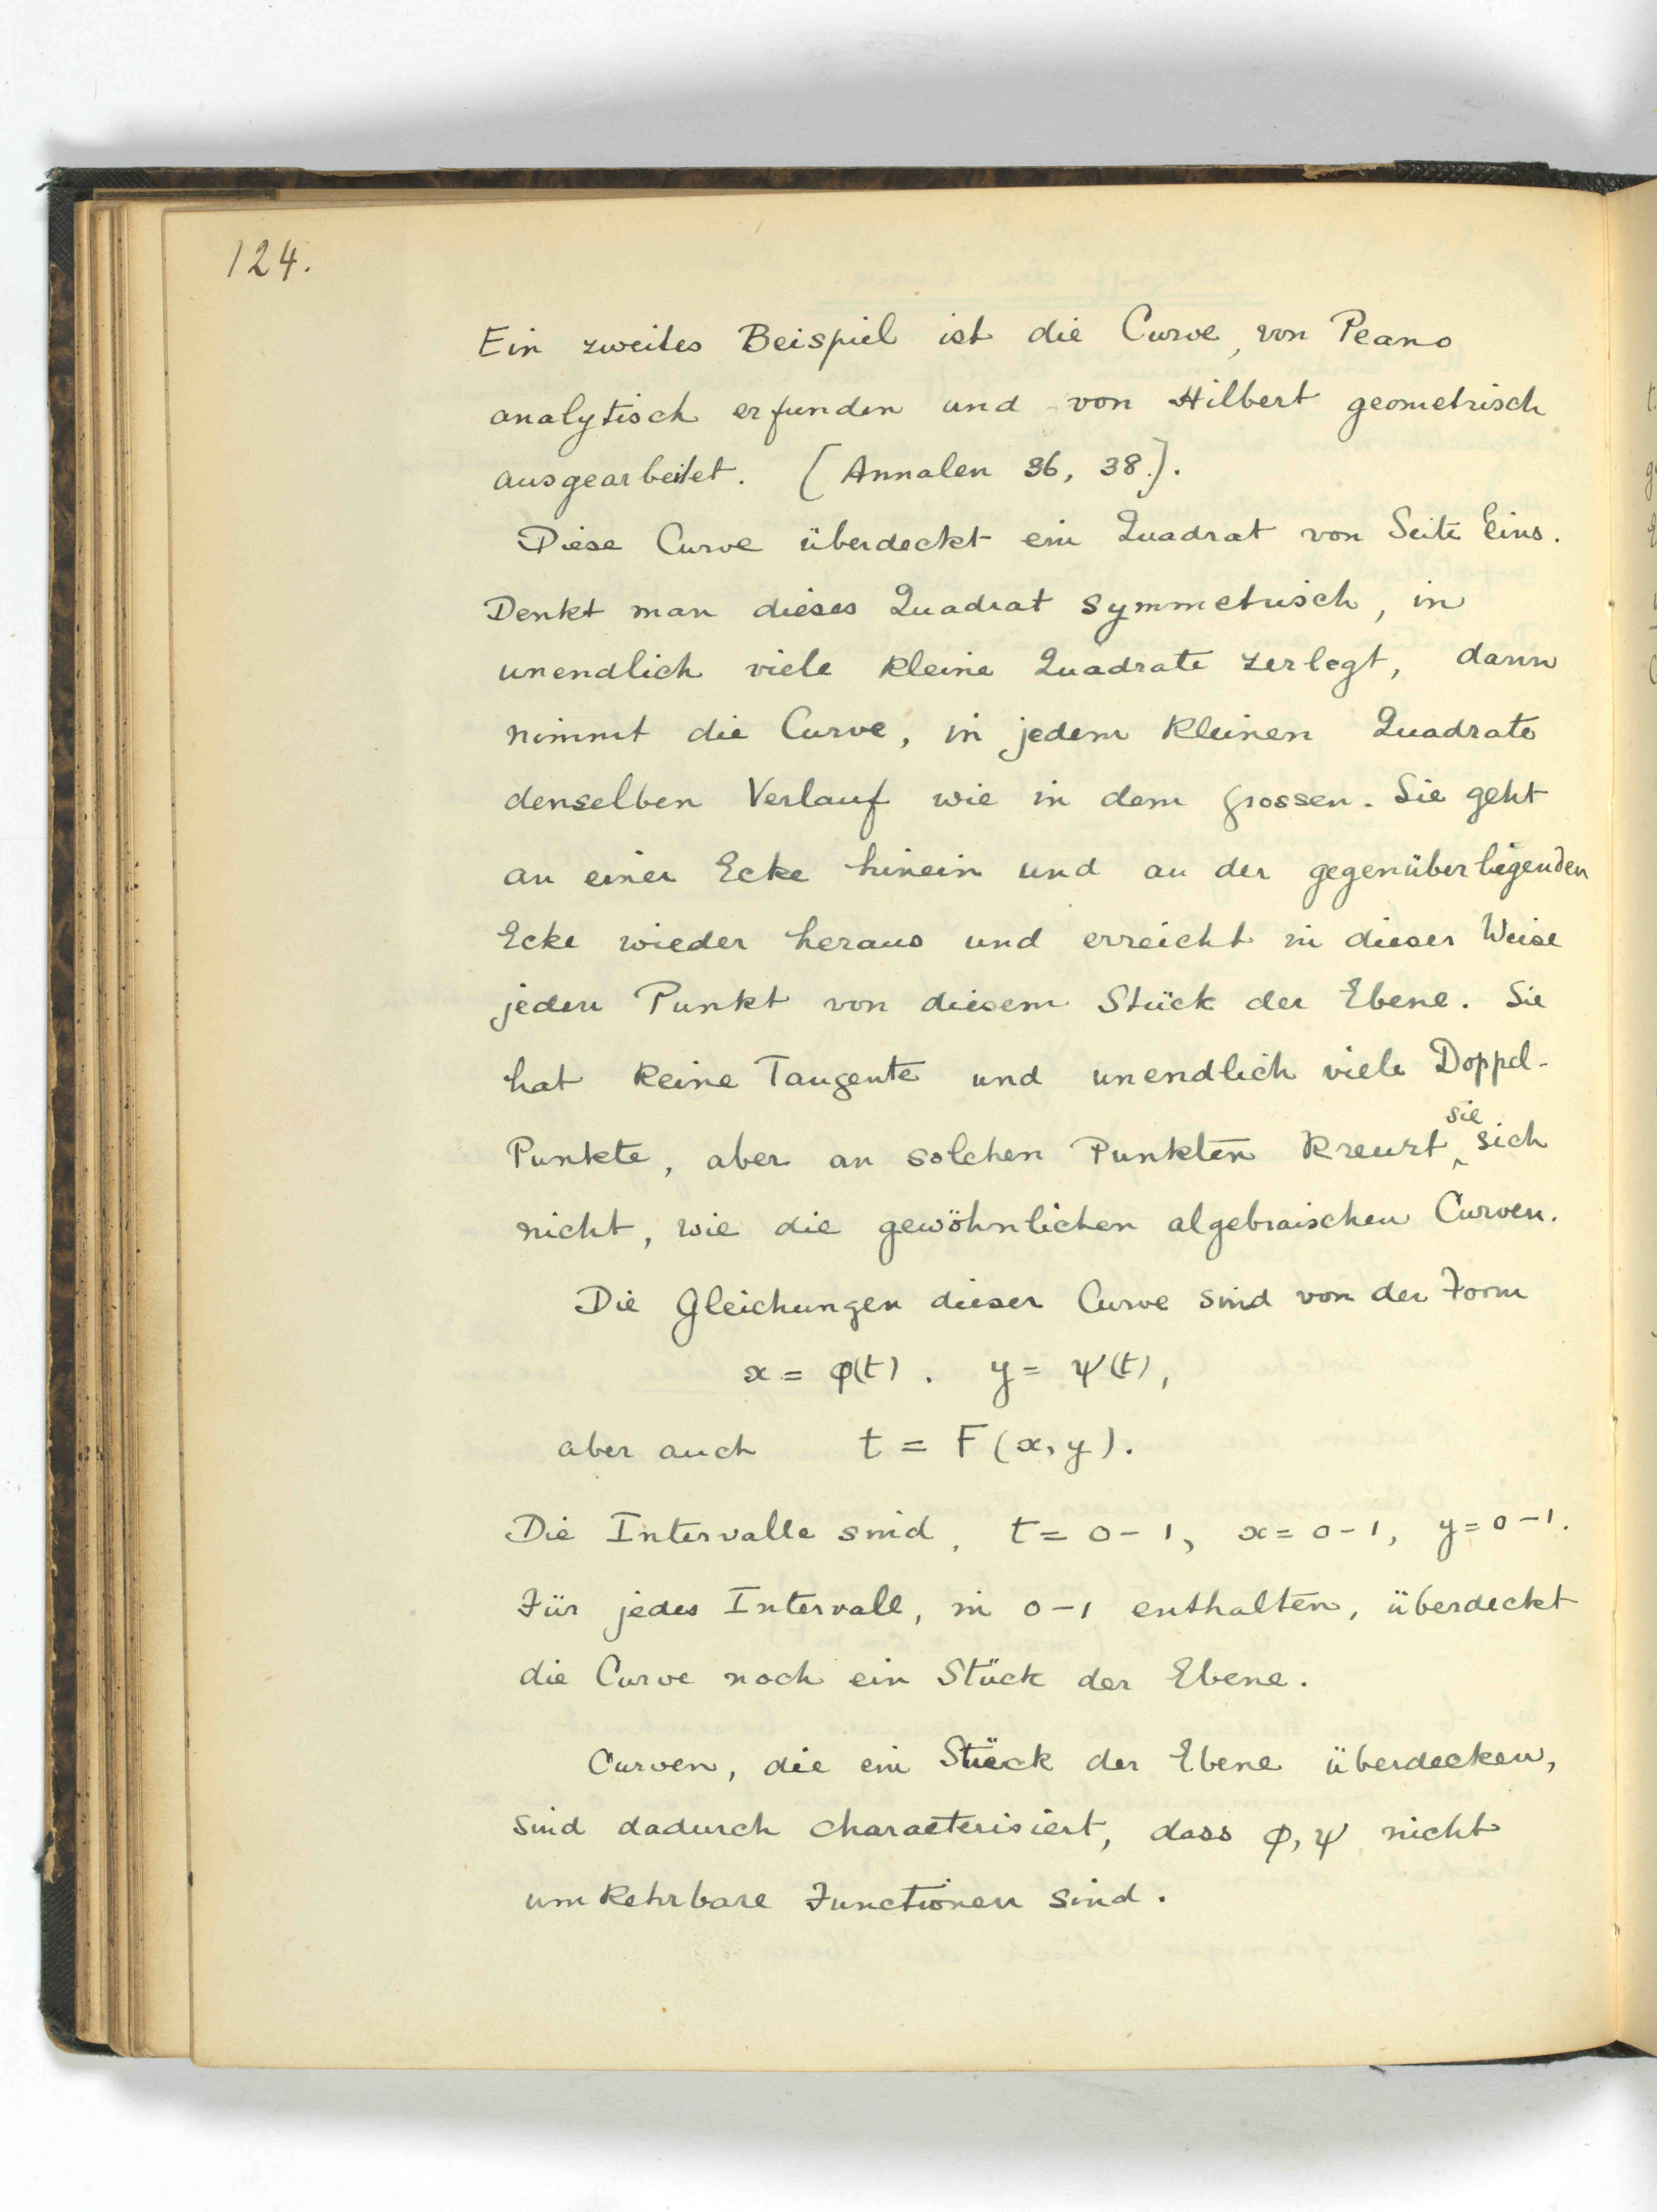 124.
Ein zweites Beispiel ist die Curve, von Peano
analytisch erfunden und von Hilbert geometrisch
ausgearbeitet. [Annalen 36, 38.].
Diese Curve überdeckt ein Quadrat von Seite Eins.
Denkt man dieses Quadrat symmetrisch, in
unendlich viele kleine Quadrate zerlegt, dann
nimmt die Curve, in jedem kleinen Quadrate
denselben Verlauf wie in dem grossen. Sie geht
an einer Ecke hinein und an der gegenüberligenden
Ecke wieder heraus und erreicht in dieser Weise
jeden Punkt von diesem Stück der Ebene. Sie
hat keine Tangente und unendlich viele Doppel-
Punkte, aber an solchen Punkten kreuzt sie sich
nicht, wie die gewöhnlichen algebraischen Curven.
Die Gleichungen dieser Curve sind von der Form
x = φ(t). y = ψ(t),
aber auch t = F(x, y).
Die Intervalle sind, t = 0 - 1, x = 0 - 1, y = 0 - 1.
Für jedes Intervall, in 0 - 1 enthalten, überdeckt
die Curve noch ein Stück der Ebene.
Curven, die ein Stück der Ebene überdecken,
sind dadurch characterisiert, dass φ, ψ nicht
umkehrbare Functionen sind.